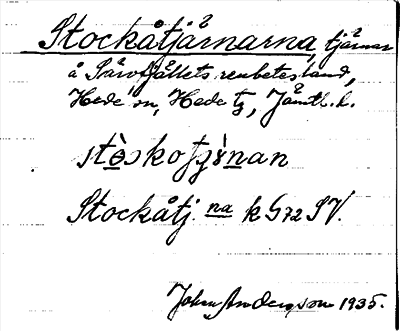 Stockåtjärnarna, tjärnar
å Särvfjällets renbetesland,
Hede sn, Hede tg, Jämtl. l.
Stockåtj. na k G72 SV.
Johan Anderson 1935.